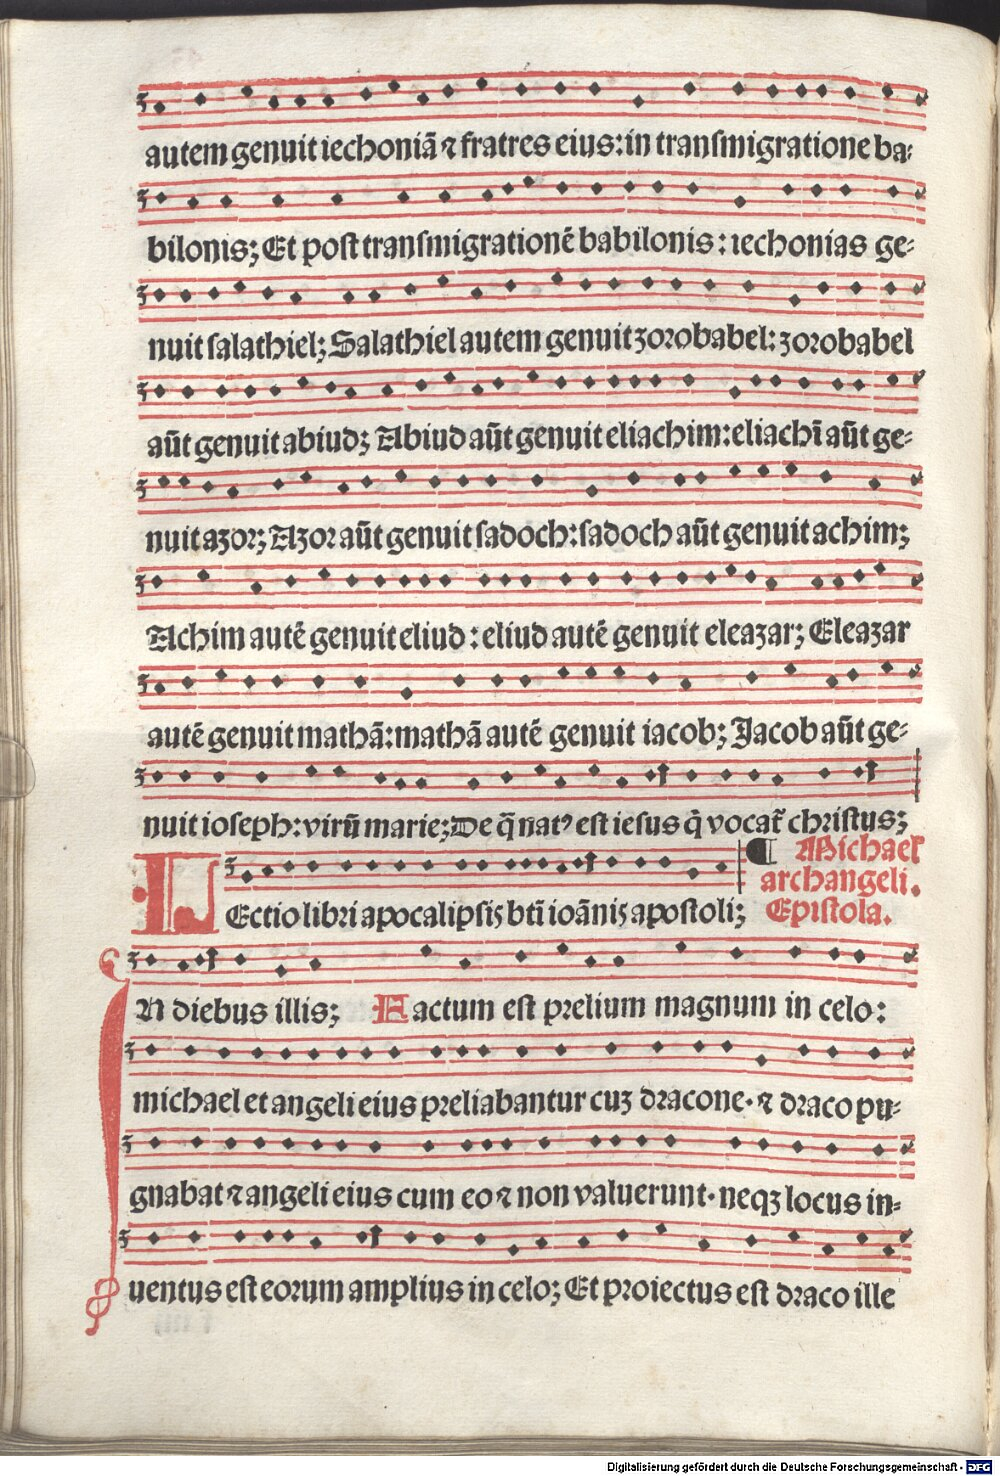 autem genuit iechoniā ⁊ fratres eius: in tranſmigratione ba⸗
bilonis; Et poſt tranſmigrationē babilonis: iechonias ge⸗
nuit ſalathiel; Salathiel autem genuit zorobabel: zorobabel
aūt genuit abiud; Abiud aūt genuit eliachim: eliachī aūt ge⸗
nuit azor; Azor aūt genuit ſadoch: ſadoch aūt genuit achim;
Achim autē genuit eliud: eliud autē genuit eleazar; Eleazar
autē genuit mathā: mathā autē genuit iacob; Jacob aūt ge⸗
nuit ioſeph: virū marie; De q̄ natꝰ eſt ieſus q̄ vocat̄ chriſtus;
Michael
archangeli.
Epiſtola.
LEctio libri apocalipſis bt̄i ioānis apoſtoli;
IN diebus illis; Factum eſt prelium magnum in celo:
michael et angeli eius preliabantur cuꝫ dracone. ⁊ draco pu⸗
gnabat ⁊ angeli eius cum eo ⁊ non valuerunt. neqꝫ locus in⸗
uentus eſt eorum amplius in celo; Et proiectus eſt draco ille
Digitalisierung gefördert durch die Deutsche Forschungsgemeinschaft - DFG